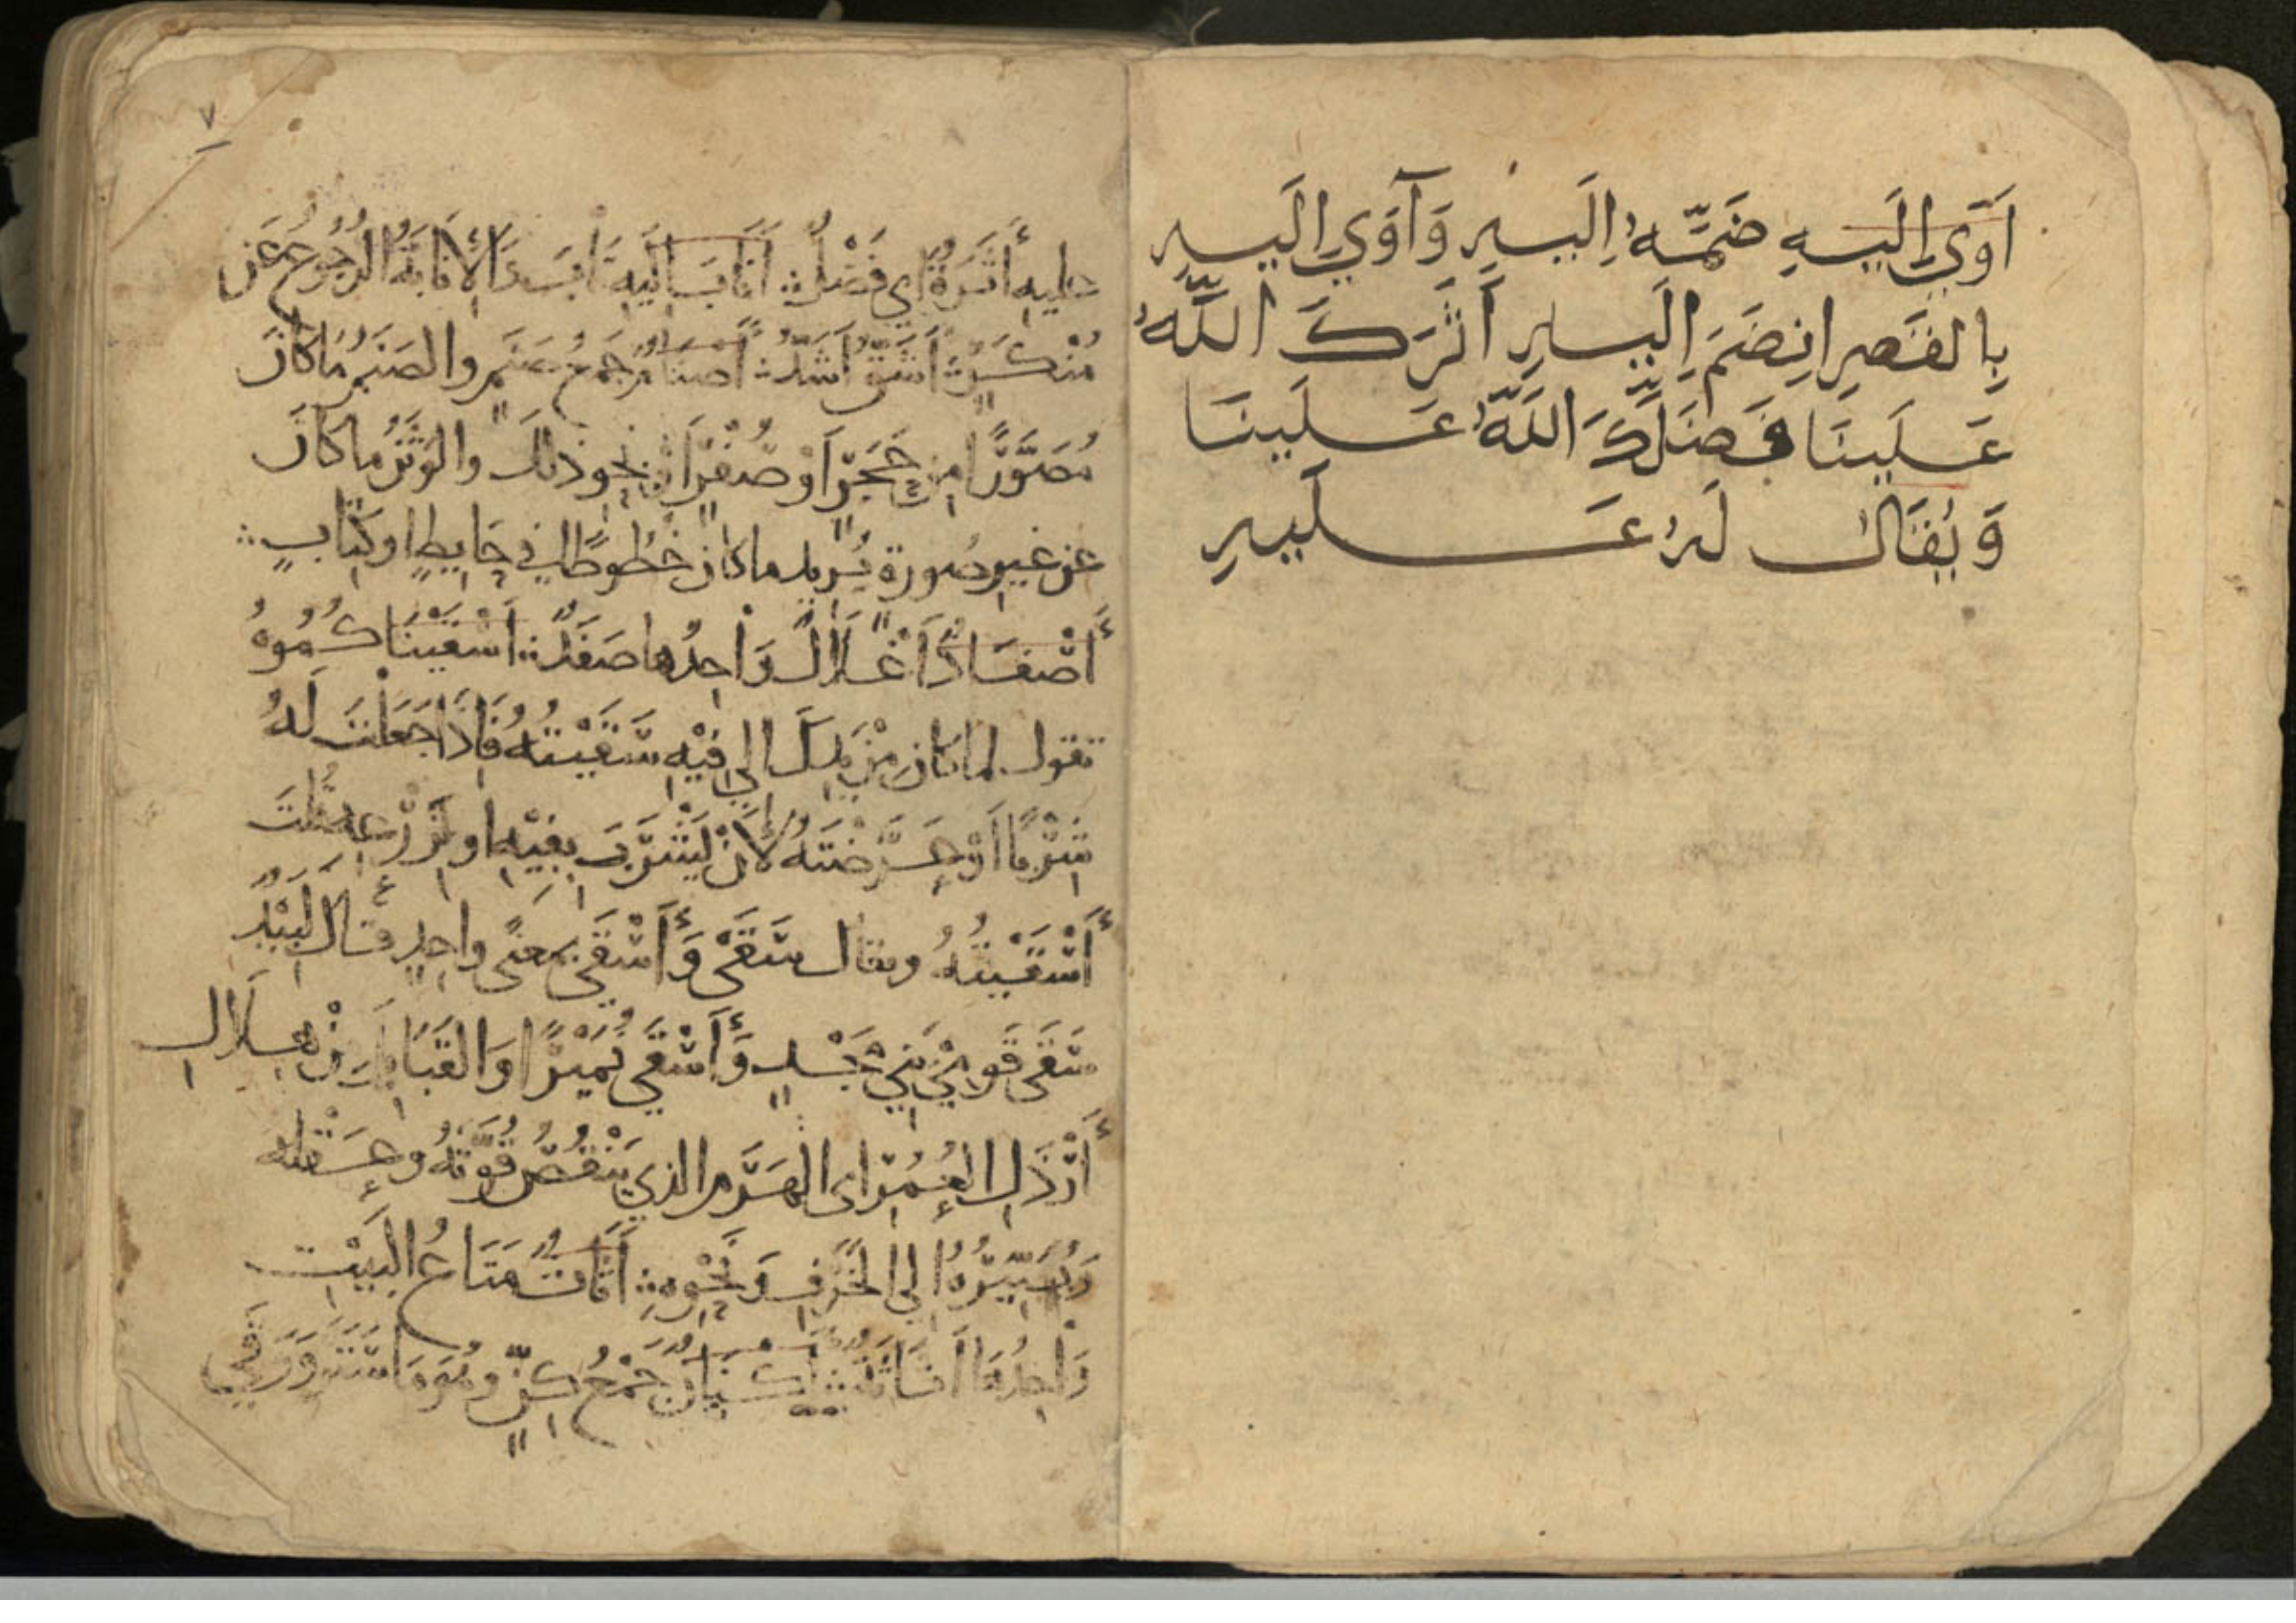 آوَى إِلَيهِ ضَمَّهُ إِلَيهِ وَآوَي إِلَيهِ
بِالقَصرِ انضَمَ إِلَيهِ آثَرَكَ اللَّهُ
عَلَينَا فَضَّلَكَ اللَّهُ عَلَينَا
وَيُقَالُ لَهُ عَلَيهِ
٧
عليه أَثَرَةٌ اي فَضْلٌ ∴ أَنَابَ إليه تَابَ وَالإنَابَةُ الرُّجُوعُ عَن
مُنْكَرٍ ∴ أَشَقُّ أَشَدُّ ∴ أَصنَامٌ جَمعُ صَنَمٍ والصَنَمُ مَا كَانَ
مُصَوَّرًا مِن حَجَرٍ أوْ صُفْرٍ أوْ نَحوِ ذلك والوَثَنُ ما كَانَ
عن غيرِ صُورة يُريد ما كان خُطُوطًا في حَايطٍ اوكِتابٍ ∴
أَصْفَادٌ أَغْلَالٌ وَاحِدُها صَفَدٌ ∴ أَسْقَيْنَاكُمُوهُ
تقول لما كان مِنْ يَدِكَ الي فِيْهِ سَقَيْتُهُ فَإِذَا جَعَلْتَ لَهُ
شِرْبًا أوْ عَرَّضْتَهُ لأَنْ يَشْرَبَ بِفِيْهِ او لِزَرْعِهِ قُلْتَ
أَسْقَيْتُهُ ويقال سَقَى وَأَسْقَى بمعنًى واحِدٍ قال لَبِيْدٌ
سَقَى قَوْمِي بَنِي مَجْدٍ وَأَسْقَى نُمَيْرًا وَالقَبَائِلَ مِنْ هِلَالِ
أَرْذَلِ العُمُرِ اى الهَرَم الذي يَنْقُصُ قُوَّتَهُ وعَقْله
وَيُصَيِّرُهُ إلى الخَرَفِ وَنَحْوِهِ ∴ أَثَاثٌ مَتَاعُ البَيْتِ
وَاحِدُهَا أَثَاثَةٌ ∴ أَكْنَانٌ جَمْعُ كِنٍّ وهُوَ مَا سَتَرَ وَوَقَى